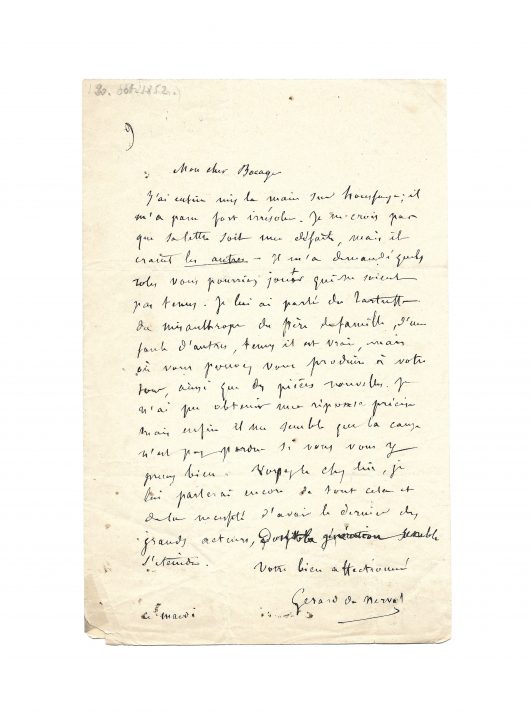 Mon cher Bocage
J'ai enfin mis la main sur houssaye; il
m'a paru fort irrésolu. Je ne crois pas
que sa lettre soit une défaite, mais il
craint les autres – Il m'a demandé quels
roles vous pourriez jouer qui ne soient
pas tenus. Je lui ai parlé du Tartuffe
du misanthrope du père de famille, d'une
foule d'autres, tenus il est vrai, mais
où vous pouvez vous produire à votre
tour, ainsi que des pièces nouvelles. Je
n'ai pu obtenir une réponse précise
mais enfin il me semble que la cause
n'est pas perdue si vous vous y
prenez bien. Voyez le chez lui, je
lui parlerai encore de tout cela et
de la necessité d'avoir le dernier des
grands acteurs, dont la génération semble
s'éteindre.
Votre bien affectionné
Gerard de Nerval
ce mardi